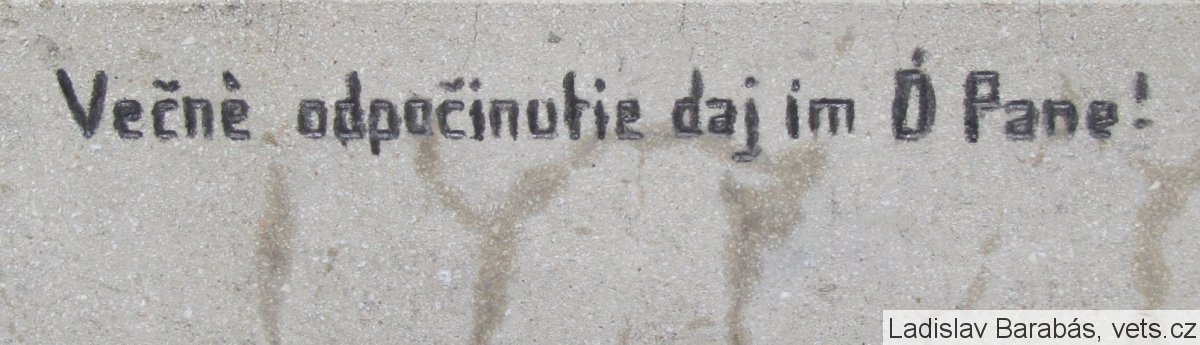 Večné odpočinutie daj im Ó Pane!
Ladislav Barabás, vets.cz